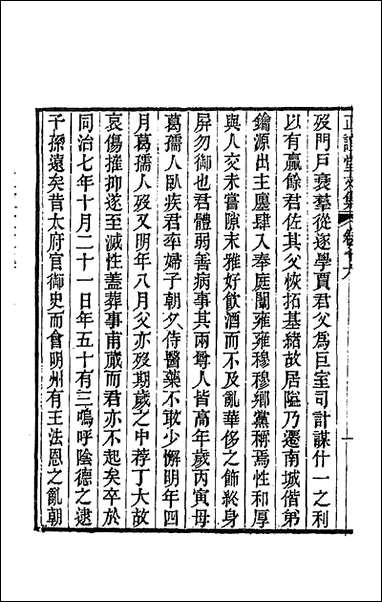 正誼堂文集 卷十六 一
歿門戶衰羣從逐學賈君父為巨室司計謀什一之利
以有贏餘君佐其父恢拓基緒故居隘乃遷南城偕弟
鑰源出主廛肆入奉庭闈雍雍穆穆鄉黨稱焉性和厚
與人交未嘗隙末雅好飲酒而不及亂華侈之飾終身
屏勿御也君體弱善病事其兩尊人皆高年歲丙寅母
葛孺人臥疾君率婦子朝夕侍醫藥不敢少懈明年四
月葛孺人歿又明年八月父亦歿期歲之中荐丁大故
哀傷摧抑遂至滅性蓋葬事甫蕆而君亦不起矣卒於
同治七年十月二十一日年五十有三嗚呼陰德之逮
子孫遠矣昔太府官御史而會明州有王法恩之亂朝